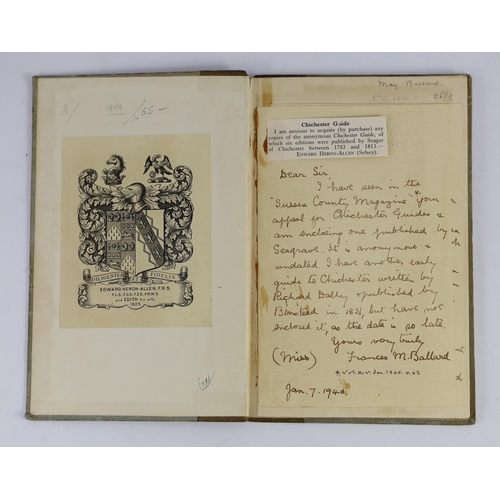 1814
£55-
DILIGENTER ET FIDELITER
EDWARD HERON-ALLEN, F.R.S.
F.L.S., F.G.S., F.Z.S., F.R.M.S.
and EDITH his wife
1925
May Ballard
25/8
Chichester Guide
I am anxious to acquire (by purchase) any
copies of the anonymous Chichester Guide, of
which six editions were published by Seager
of Chichester between 1783 and 1813.—
EDWARD HERON-ALLEN (Selsey).
Dear Sir,
I have seen in the
"Sussex County Magazine"* your
appeal for Chichester Guides &
am enclosing one published by
Seagrave. It is anonymous &
undated I have another early
guide to Chichester written by
Richard Dally & published by
Binstead in 1831, but have not
enclosed it, as the date is so late.
Yours very truly
(Miss) Frances M. Ballard
* Vol. XIV. Jan. 1940. p. 62
Jan. 7. 1940.